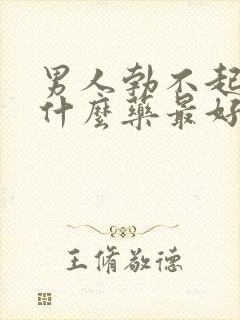 男人勃不起
什麼藥最好
王脩敬德